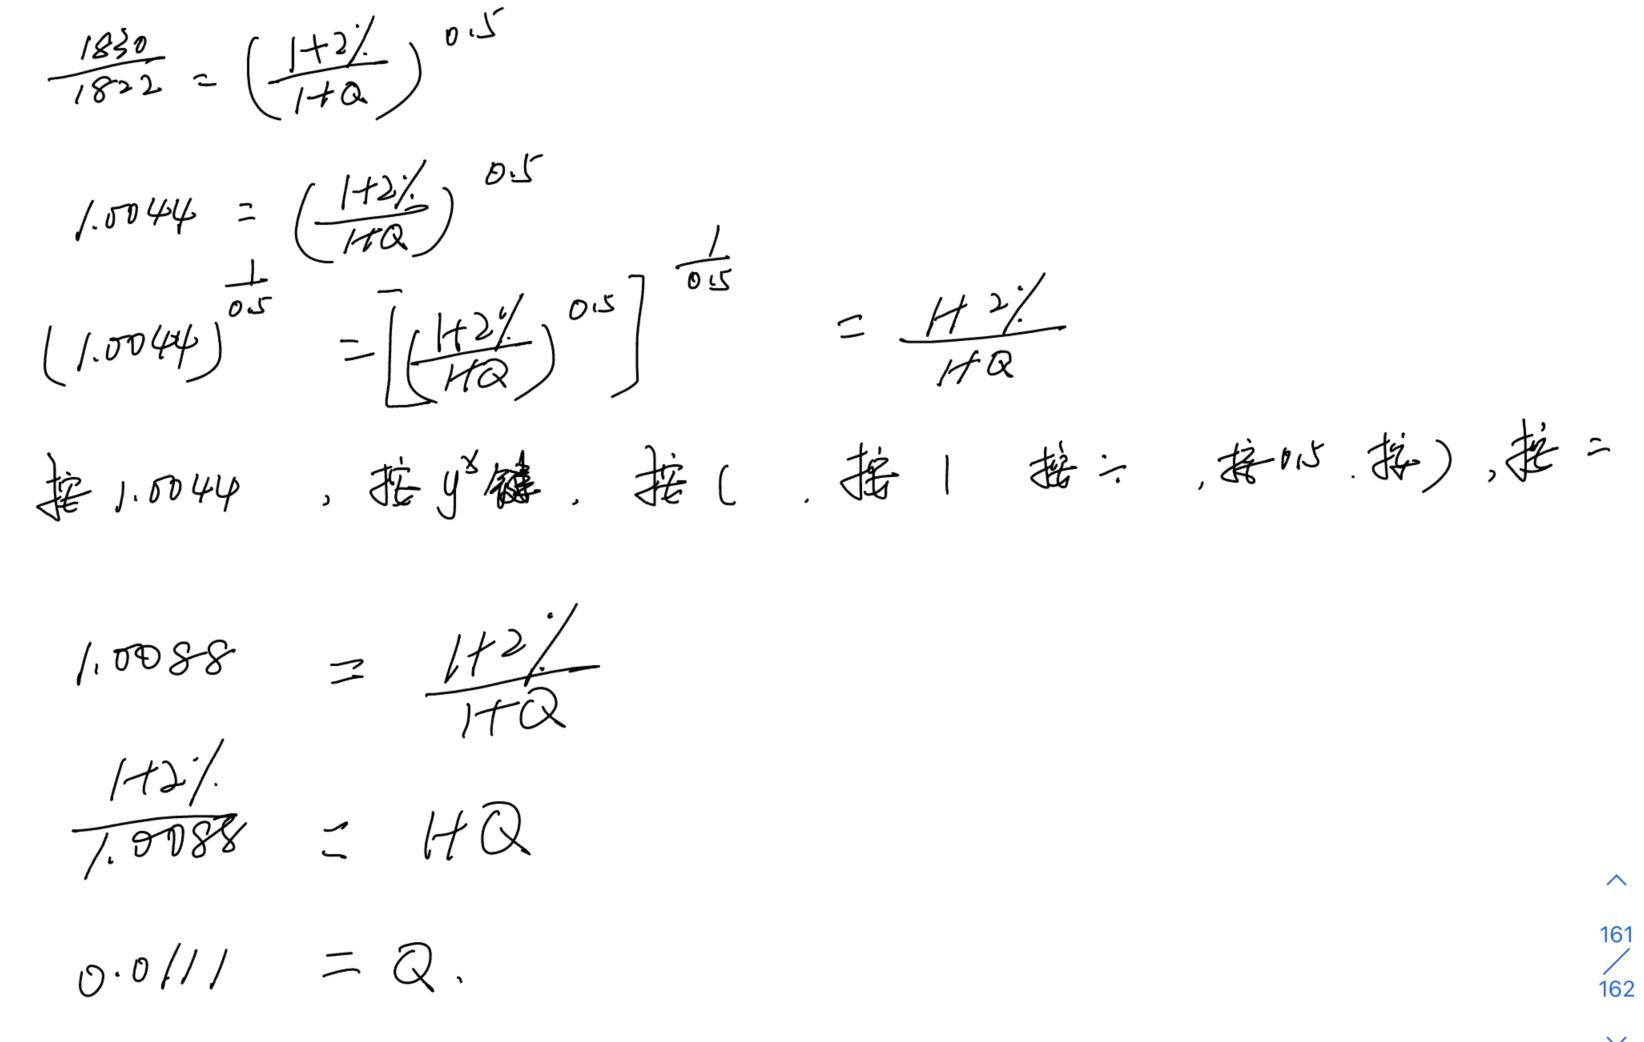 1830/1822 = ((1+2%)/(1+Q))^0.5
1.0044 = ((1+2%)/(1+Q))^0.5
(1.0044)^(1/0.5) = [((1+2%)/(1+Q))^0.5]^(1/0.5) = (1+2%)/(1+Q)
按 1.0044 , 按 y^x 键 . 按 ( . 按 1 按 ÷ , 按 0.5 . 按 ) , 按 =
1.0088 = (1+2%)/(1+Q)
(1+2%)/1.0088 = 1+Q
0.0111 = Q.
161
/
162